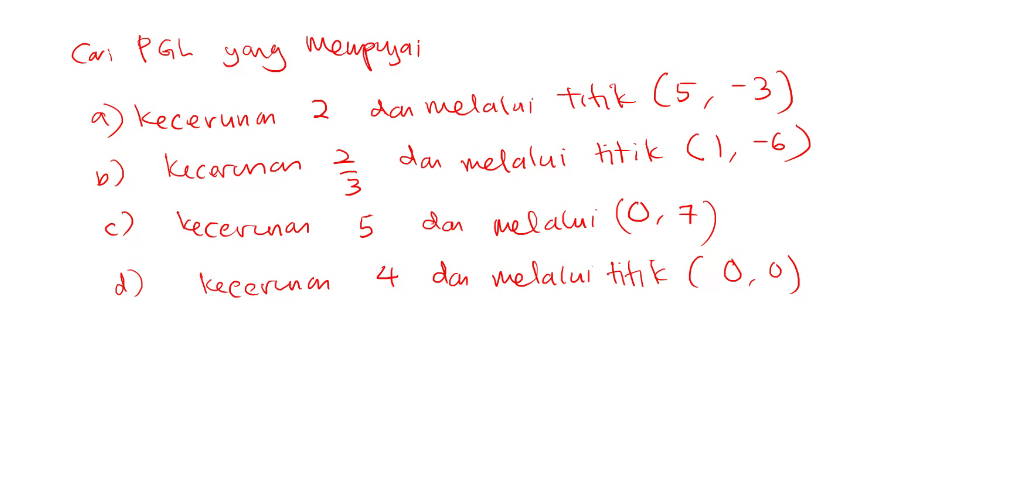 Cari PGL yang Mempuyai
a) kecerunan 2 dan melalui titik (5, -3)
b) kecerunan 2/3 dan melalui titik (1, -6)
c) kecerunan 5 dan melalui (0, 7)
d) kecerunan 4 dan melalui titik (0, 0)